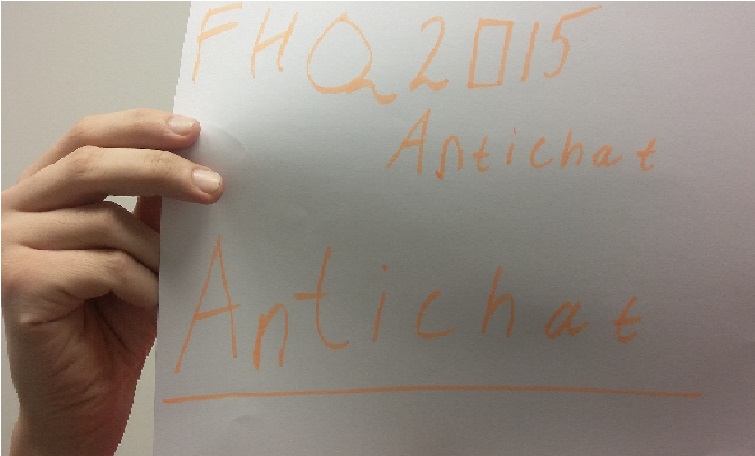 FHQ2015
Antichat
Antichat